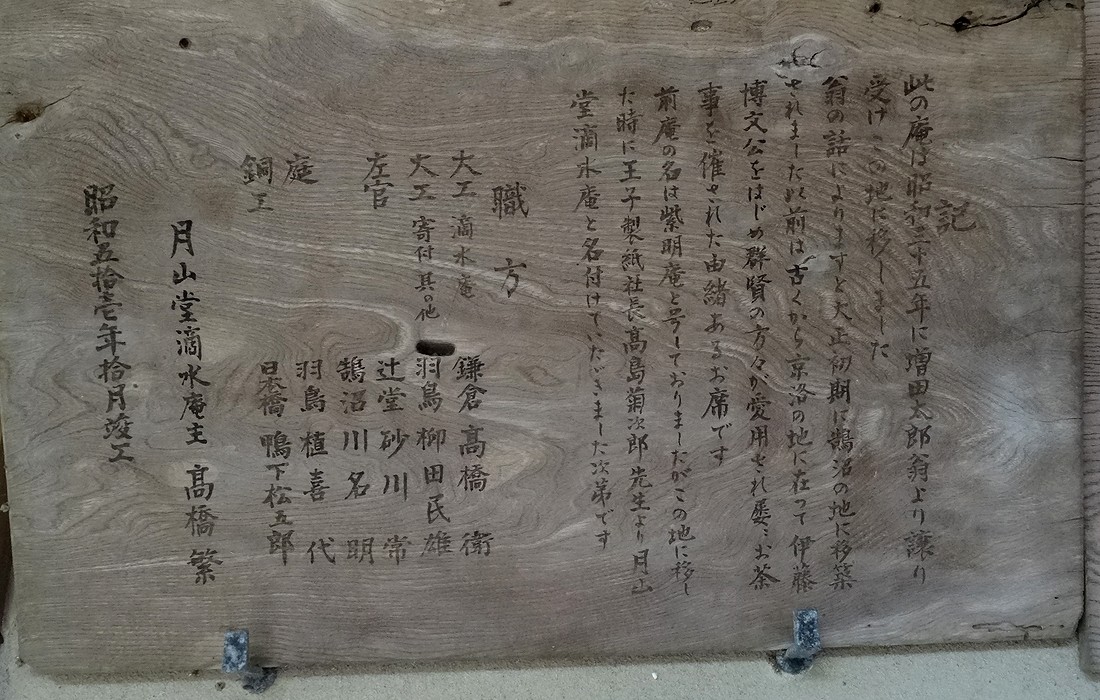 記
此の庵は昭和三十五年に増田太郎翁より譲り
受けこの地に移しました
翁の話によりますと大正初期に鵠沼の地に移築
されました以前は古くから京洛の地に在って伊藤
博文公をはじめ群賢の方々が愛用され屡々お茶
事を催された由緒あるお席です
前庵の名は紫明庵と号しておりましたがこの地に移し
た時に王子製紙社長高島菊次郎先生より月山
堂滴水庵と名付けていただきました次第です
職方
大工 滴水庵 鎌倉 高橋 衛
大工 寄付其の他 羽鳥 柳田民雄
左官 辻堂 砂川 常
鵠沼 川名 明
庭 羽鳥 植喜代
銅工 日本橋 鴨下松五郎
月山堂滴水庵主 高橋繁
昭和五拾壱年拾月竣工